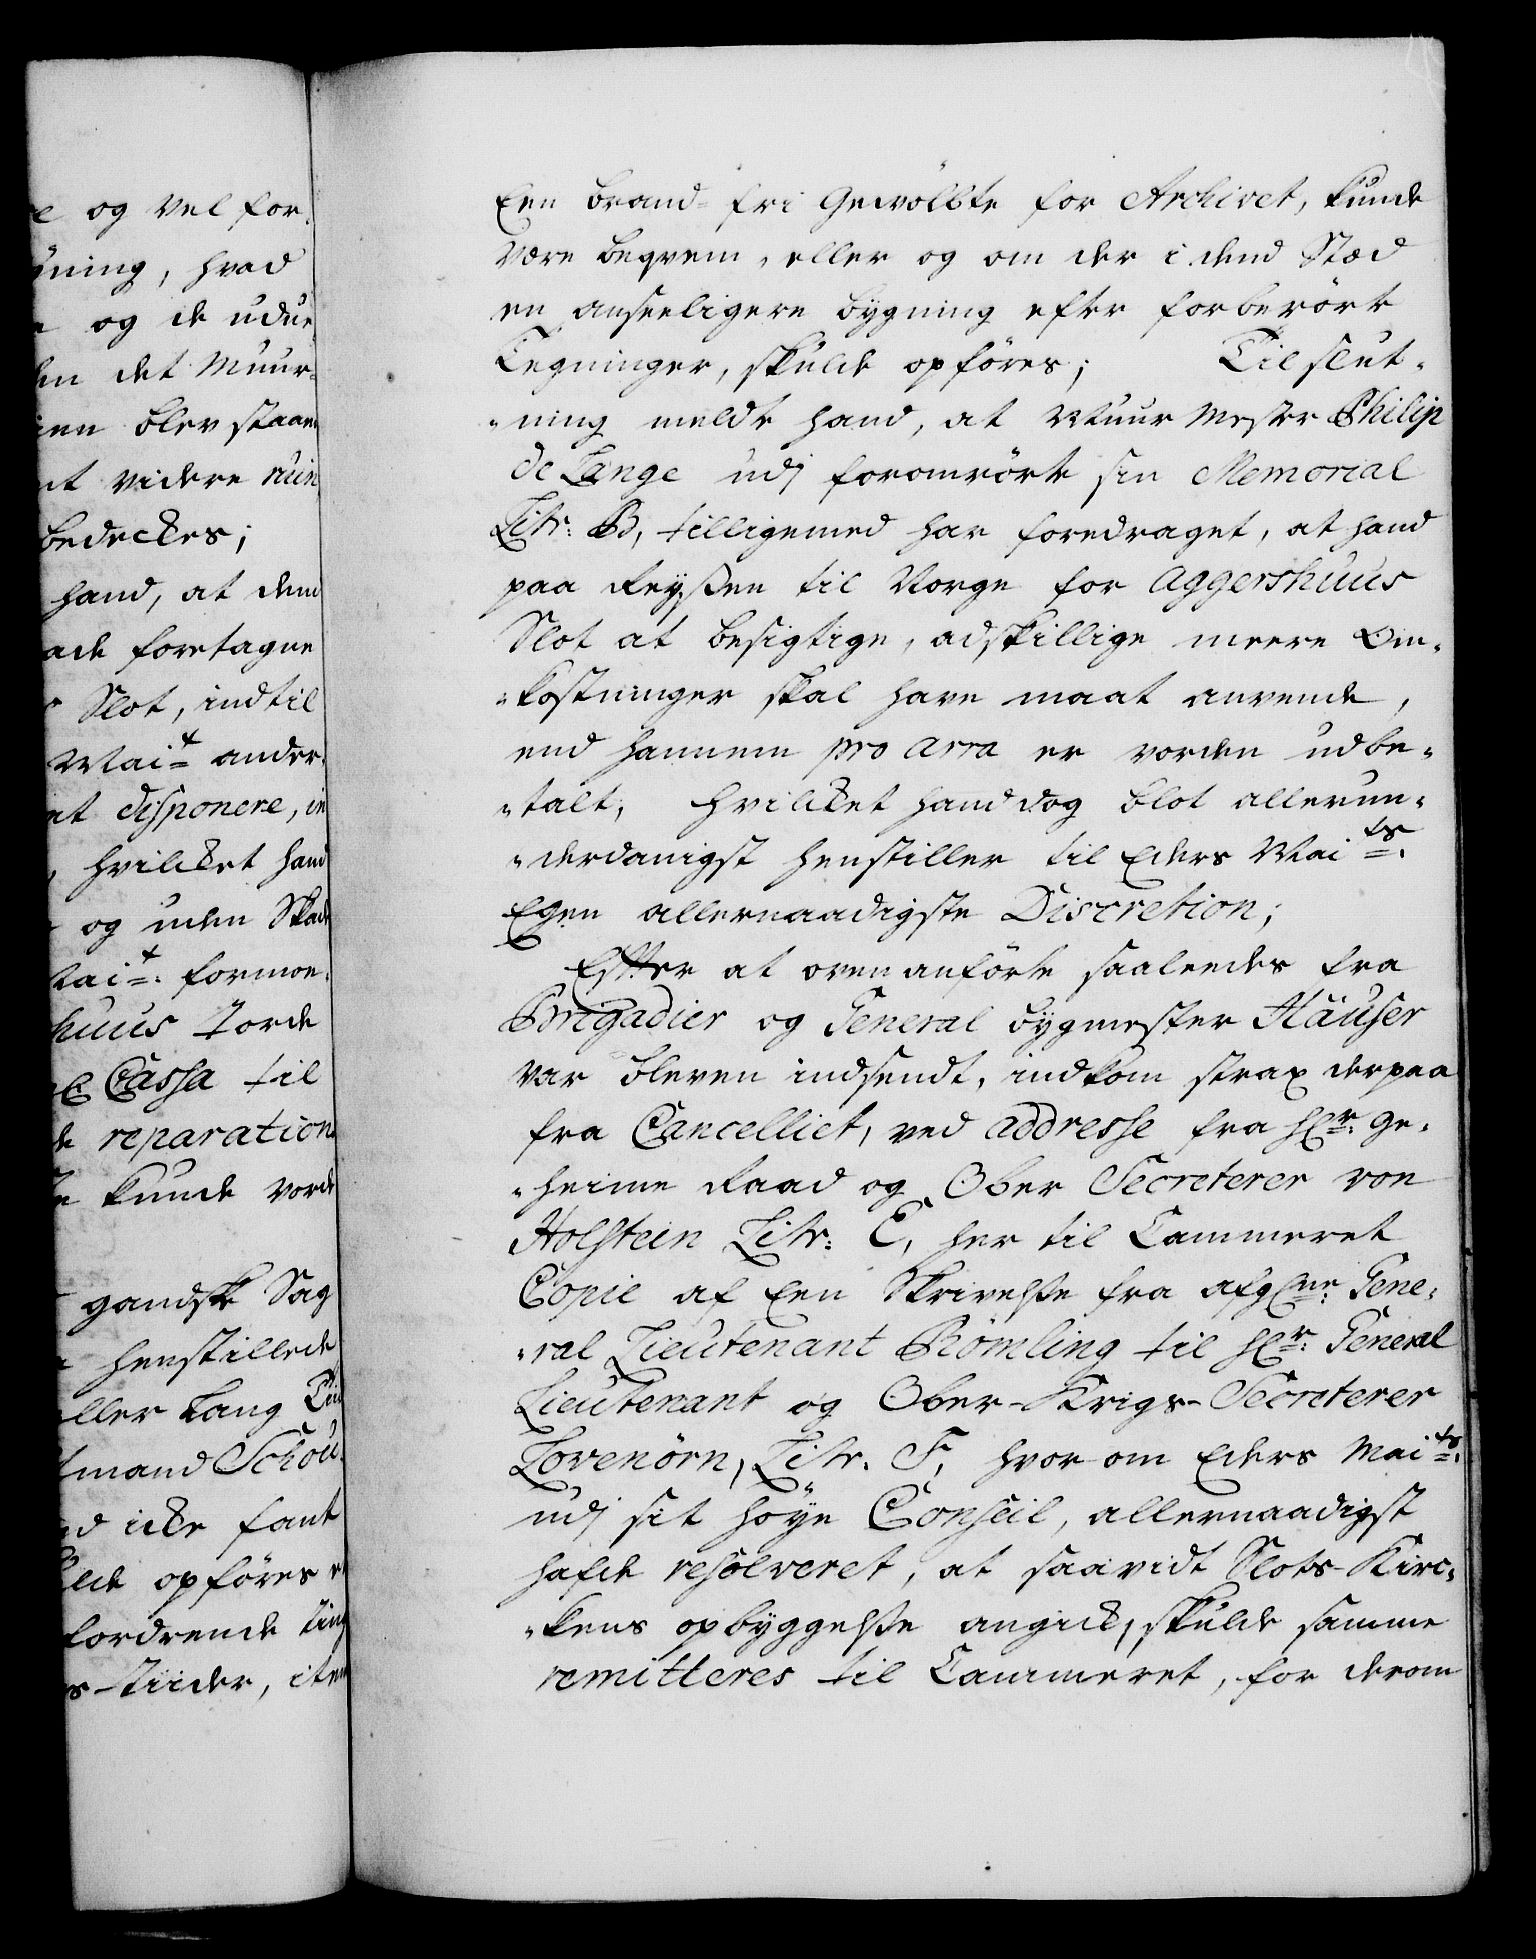 e og vel for-
ygning, hvad
e og de udue
den det Muur-
ien blev staan-
at videre ruin
bedeckes;
hand, at den
ade foretagne
Slot, indtil
Mait anden
et disponere, in
, hvilcket hand
og uden Skade
Mait: formoe-
huus torde
Cassa til
de reparation
kunde vorde
gandske Sag
henstillede
eller lang Tiid
tmand Schou-
ad icke fant
lde opføres
fordrende ting
s-tiider, item
Een brand-fri Gewölbte for Archivet, kunde
være beqvem, eller og om der i dend Stæd
en anseeligere bygning efter forberørte
Tegninger, skulde opføres; Til slut-
-ning meldte hand, at Muur Mester Philip
de Lange udj foromrørte sin Memorial
Litr: B, tilligemed har foredraget, at hand
paa Reyßen til Norge for Aggershuus
Slot at besigtige, adskillige meere Om-
-kostninger skal have maat anvende,
end hannem pro arra er vorden udbe-
-talt, hvilcket hand dog blot allerun-
-derdanigst henstiller til Eders Maits:
Egen allernaadigste Discretion;
Effter at ovenanførte saaleedes fra
Brigadier og General bygmester Häuser
var bleven indsendt, indkom strax derpaa
fra Cancelliet, ved addresse fra Hr: Ge-
-heime Raad og Ober Secreterer von
Holstein Litr: E, her til Cammeret
Copie af Een Skrivelße fra afgne: Gene-
-ral Lieutenant Römling til Hr: General
Lieutenant og Ober-Krigs-Secreterer
Lövenörn, Litr. F, hvor om Eders Maits:
udj sit høye Conseil, allernaadigst
hafde resolveret, at saavidt Slots-Kirc-
-kens opbyggelße angick, skulde samme
remitteres til Cammeret, for derom